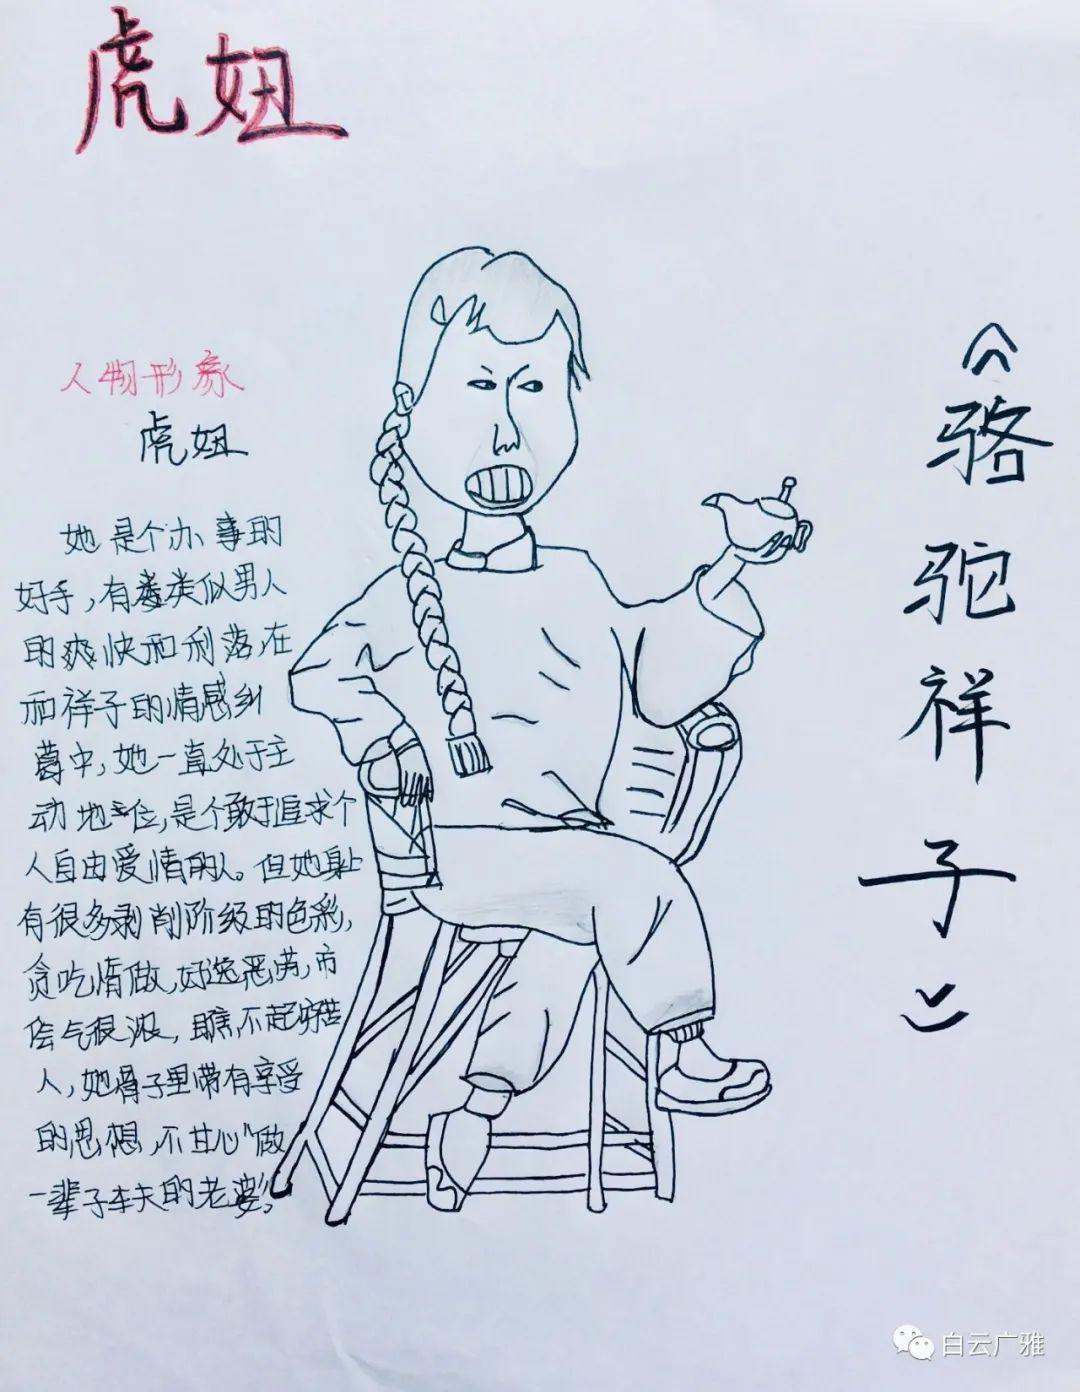 虎妞
人物形象
虎妞
她是个办事的
好手，有着类似男人
的爽快和利落，在
和祥子的情感纠
葛中，她一直处于主
动地位，是个敢于追求个
人自由爱情的人。但她身上
有很多剥削阶级的色彩，
贪吃惰做，好逸恶劳，市
侩气很浓，瞧不起穷苦
人，她骨子里带有享受
的思想，不甘心"做
一辈子车夫的老婆"。
《骆驼祥子》
白云广雅